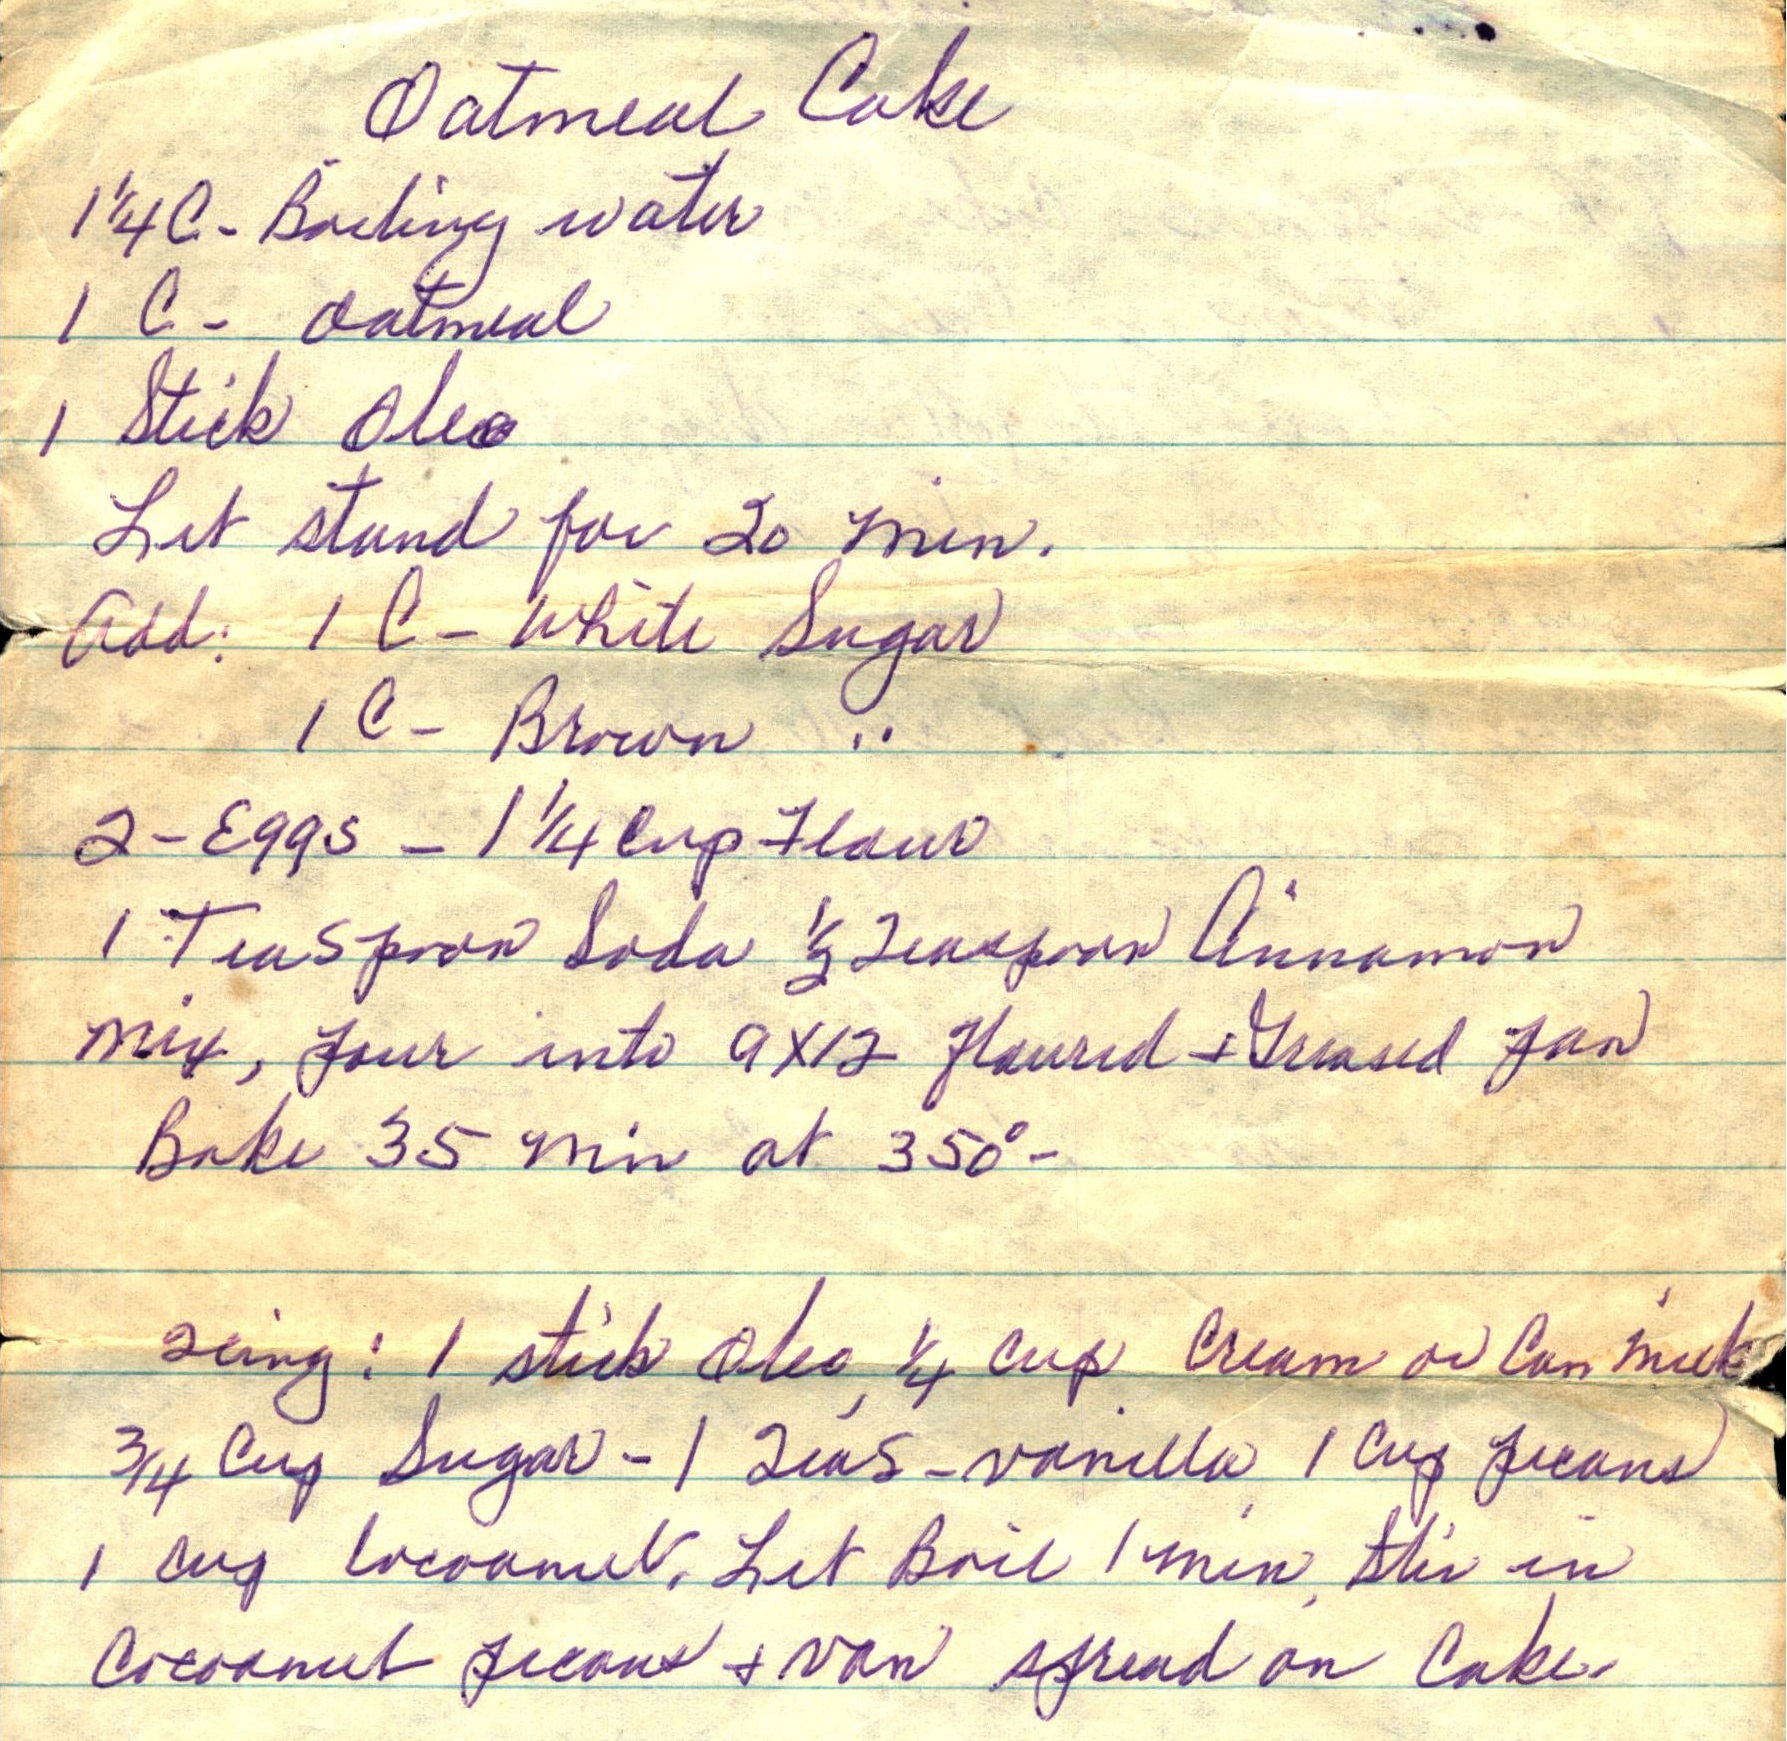 Oatmeal Cake
1 1/4 C - Boiling water
1 C - oatmeal
1 Stick Oleo
Let stand for 20 min.
Add: 1 C - White Sugar
1 C - Brown "
2 - Eggs - 1 1/4 Cup Flour
1 Teaspoon Soda 1/2 Teaspoon Cinnamon
Mix, pour into 9X12 floured + Greased pan
Bake 35 min at 350° -
Icing: 1 stick Oleo, 1/4 Cup Cream or Can Milk
3/4 Cup Sugar - 1 Teas - vanilla, 1 Cup pecans
1 Cup Cocoanut. Let Boil 1 min, Stir in
Cocoanut pecans + van spread on Cake.